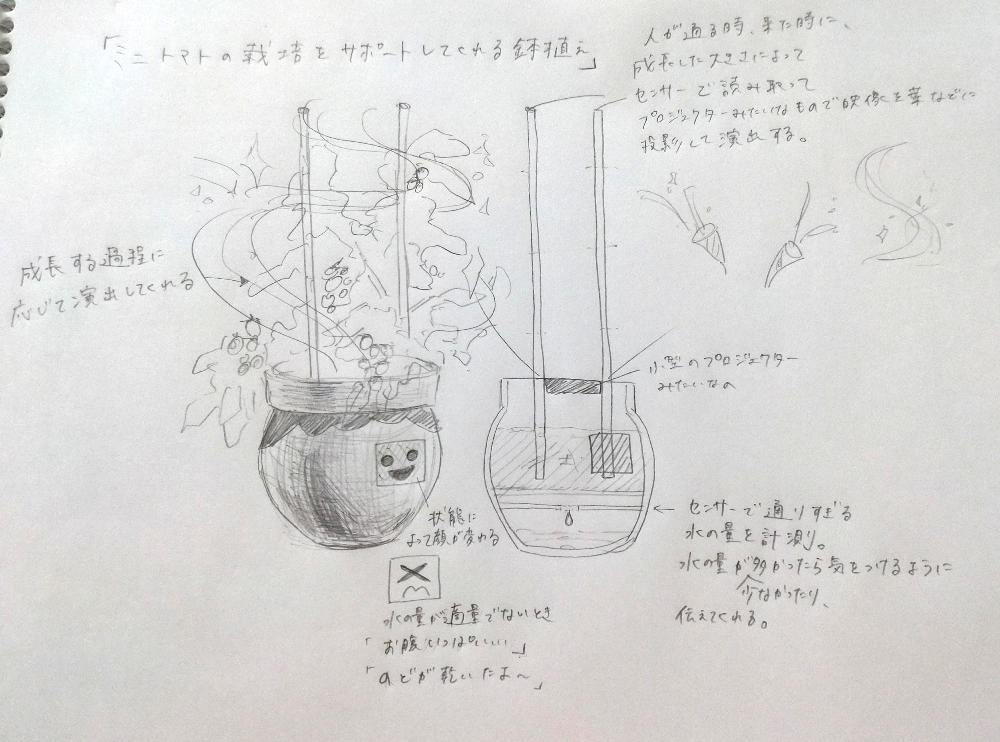 「ミニトマトの栽培をサポートしてくれる鉢植え」
人が通る時、来た時に、
成長した大きさによって
センサーで読み取って
プロジェクターみたいなもので映像を葉などに
投影して演出する。
成長する過程に
応じて演出してくれる
小型のプロジェクター
みたいなの
土
状態に
よって顔が変わる
水の量が適量でないとき
「お腹いっぱいいい」
「のどが乾いたよ〜」
センサーで通りすぎる
水の量を計測。
水の量が多かったら気をつけるように
少なかったり、
伝えてくれる。